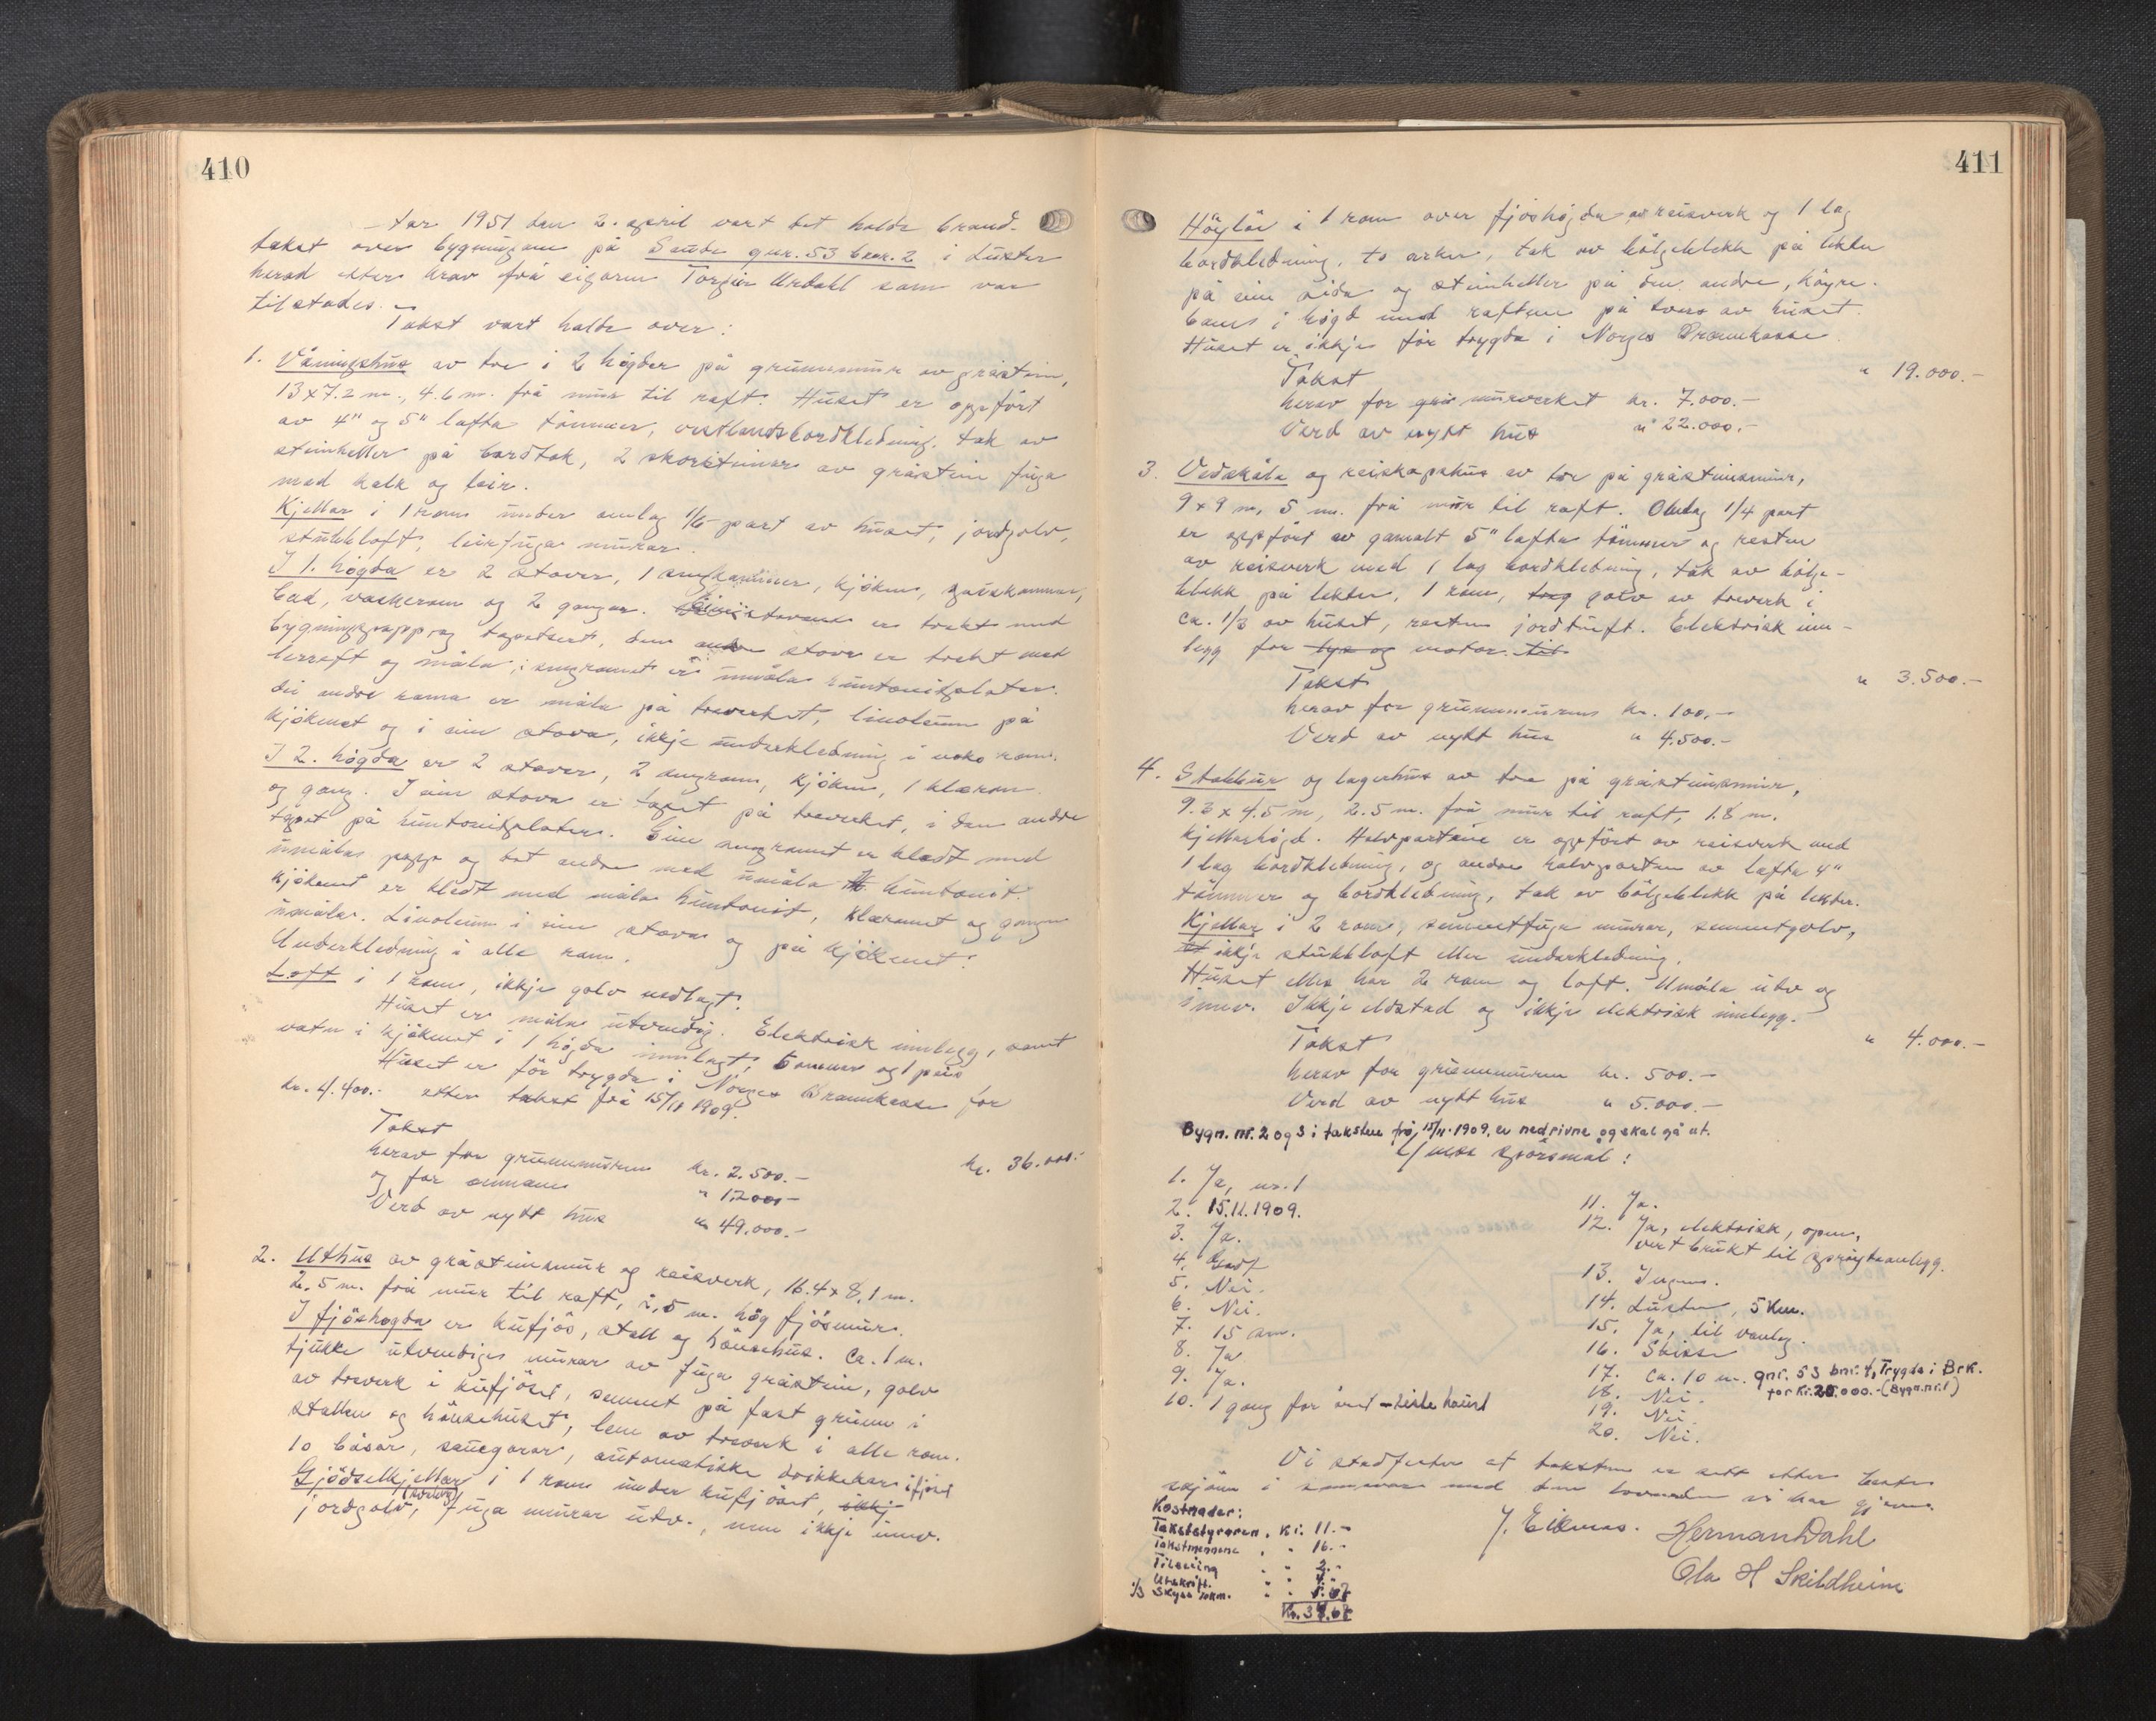 410
År 1951 den 2. april vart det halde brand-
takst over bygningane på Sande gnr. 53 bnr. 2 i Luster
herad etter krav frå eigaren Torgeir Urdahl som var
tilstades.
Takst vart halde over:
1. Våningshus av tre i 2 högder på grunnmur av gråstein,
13x7.2 m., 4.6 m. frå mur til raft. Huset er oppfört
av 4" og 5" lafta tömmer, vestlandsbordkledning. tak av
steinheller på bordtak, 2 skorsteinar av gråstein fuga
med kalk og leir.
Kjellar i 1 rom under umlag 1/6 part av huset, jordgolv,
stubbloft, leirfuga murar.
I 1. högda er 2 stover, 1 sengkammer, kjöken, spiskammer,
bad, vaskerom og 2 gangar. stovene er trekt med
bygningspapp og tapetsert, den andre stova er trekt med
lerreft og måla, i sengromet er umåla huntonitplater.
dei andre roma er måla på treverket, linoleum på
kjökenet og i ein stova, ikkje underkledning i noko rom.
I 2. högda er 2 stover, 2 sengrom, kjöken, 1 klærom
og gang. I ein stova er tapet på treverket, i den andre
tapet på huntonitplater. Eine sengromet er kledt med
umåla papp og det andre med umåla huntonit.
Kjökenet er kledt med måla huntonit, klæromet og gangen
umåla. Linoleum i ein stova og på kjökenet.
Underkledning i alle rom.
Loft i 1 rom, ikkje golv nedlagt.
Huset er måla utvendig. Elektrisk innlegg, samt
vatn i kjökenet i 1 högda innlagt, 6 omnar og 1 peis
Huset er för trygda i Norges Brannkasse for
kr. 4.400.- etter takst frå 15/11 1909.
Takst kr. 36.000.-
herav for grunnmuren kr. 2.500.-
og for omnane " 1.200.-
Verd av nytt hus " 49.000.-
2. Uthus av gråsteinsmur og reisverk, 16.4x8,1 m.
2,5 m. frå mur til raft, 2,5 m. hög fjösmur.
I fjöshogda er kufjös, stall og hönsehus. Ca. 1 m.
tjukke utvendige murar av fuga gråstein, golv
av treverk i kufjöset, sement på fast grunn i
stallen og hönsehuset, lem av treverk i alle rom.
10 båsar, sauegarar, automatiske drikkekar i fjöset
Gjödselkjellar i 1 rom under kufjöset, ikkj
jordgolv, fuga murar utv., men ikkje innv.
411
Höylöe i 1 rom over fjoshögda av reisverk og 1 lag
bordkledning, to arker, tak av bölgeblekk på lekter
på ein sida og steinheller på den andre, höyre-
bane i högd med raftene på tvers av huset.
Huset er ikkje för trygda i Norges Brannkasse
Takst " 19.000.-
herav for murverket kr. 7.000.-
Verd av nytt hus " 22.000.-
3. Vedskåle og reiskapshus av tre på gråsteinsmur,
9x9 m, 5 m. frå mur til raft. Omlag 1/4 part
er oppfört av gamalt 5" lafta tömmer og resten
av reisverk med 1 lag bordkledning, tak av bölge-
blekk på lekter, 1 rom, golv av treverk i
ca. 1/3 av huset, resten jordtuft. Elektrisk inn-
legg for lys og motor. til
Takst " 3.500.-
herav for grunnmuren kr. 100.-
Verd av nytt hus " 4.500.-
4. Stabbur og lagerhus av tre på gråsteinsmur,
9.3 x 4.5 m, 2.5 m. frå mur til raft, 1.8 m.
kjellarhögd. Halvparten er oppfört av reisverk med
1 lag bordkledning, og andre halvparten av lafta 4"
tömmer og bordkledning, tak av bölgeblekk på lekter.
Kjellar i 2 rom, sementfuga murar, sementgolv,
ikkje stubbloft eller underkledning.
Huset elles har 2 rom og loft. Umåla utv og
innv. Ikkje eldstad og ikkje elektrisk innlegg.
Takst " 4.000.-
herav for grunnmuren kr. 500.-
Verd av nytt hus " 5.000.-
Bygn. nr. 2 og 3 i taksten frå 15/11.1909, er nedrivne og skal gå ut.
spörsmål:
1. Ja, nr. 1
2. 15.11.1909.
3. Ja.
4. Godt
5. Nei.
6. Nei.
7. 15 cm.
8. Ja
9. Ja.
10. 1 gong for året - siste haust
11. Ja.
12. Ja, elektrisk, open,
vert brukt til spröyteanlegg.
13. Ingen.
14. Luster, 5 km.
15. Ja, til vanleg.
16. Skisse
17. Ca. 10 m. gnr. 53 bnr. 4, Trygda i Brk.
for kr. 20.000.- (Bygn.nr.1)
18. Nei.
19. Nei.
20. Nei.
Vi stadfester at taksten er sett etter beste
skjönn i samsvar med den lovnaden vi har gjeve.
Kostnader:
Takststyraren, kr. 11.-
Takstmennene " " 16.-
Tilseiing " " 2.-
Utskrift. " " 4.-
1/3 Skyss 10km. " " 1.67
Kr. 34.67
J. Eikenes. Herman Dahl
Ola H Skildheim